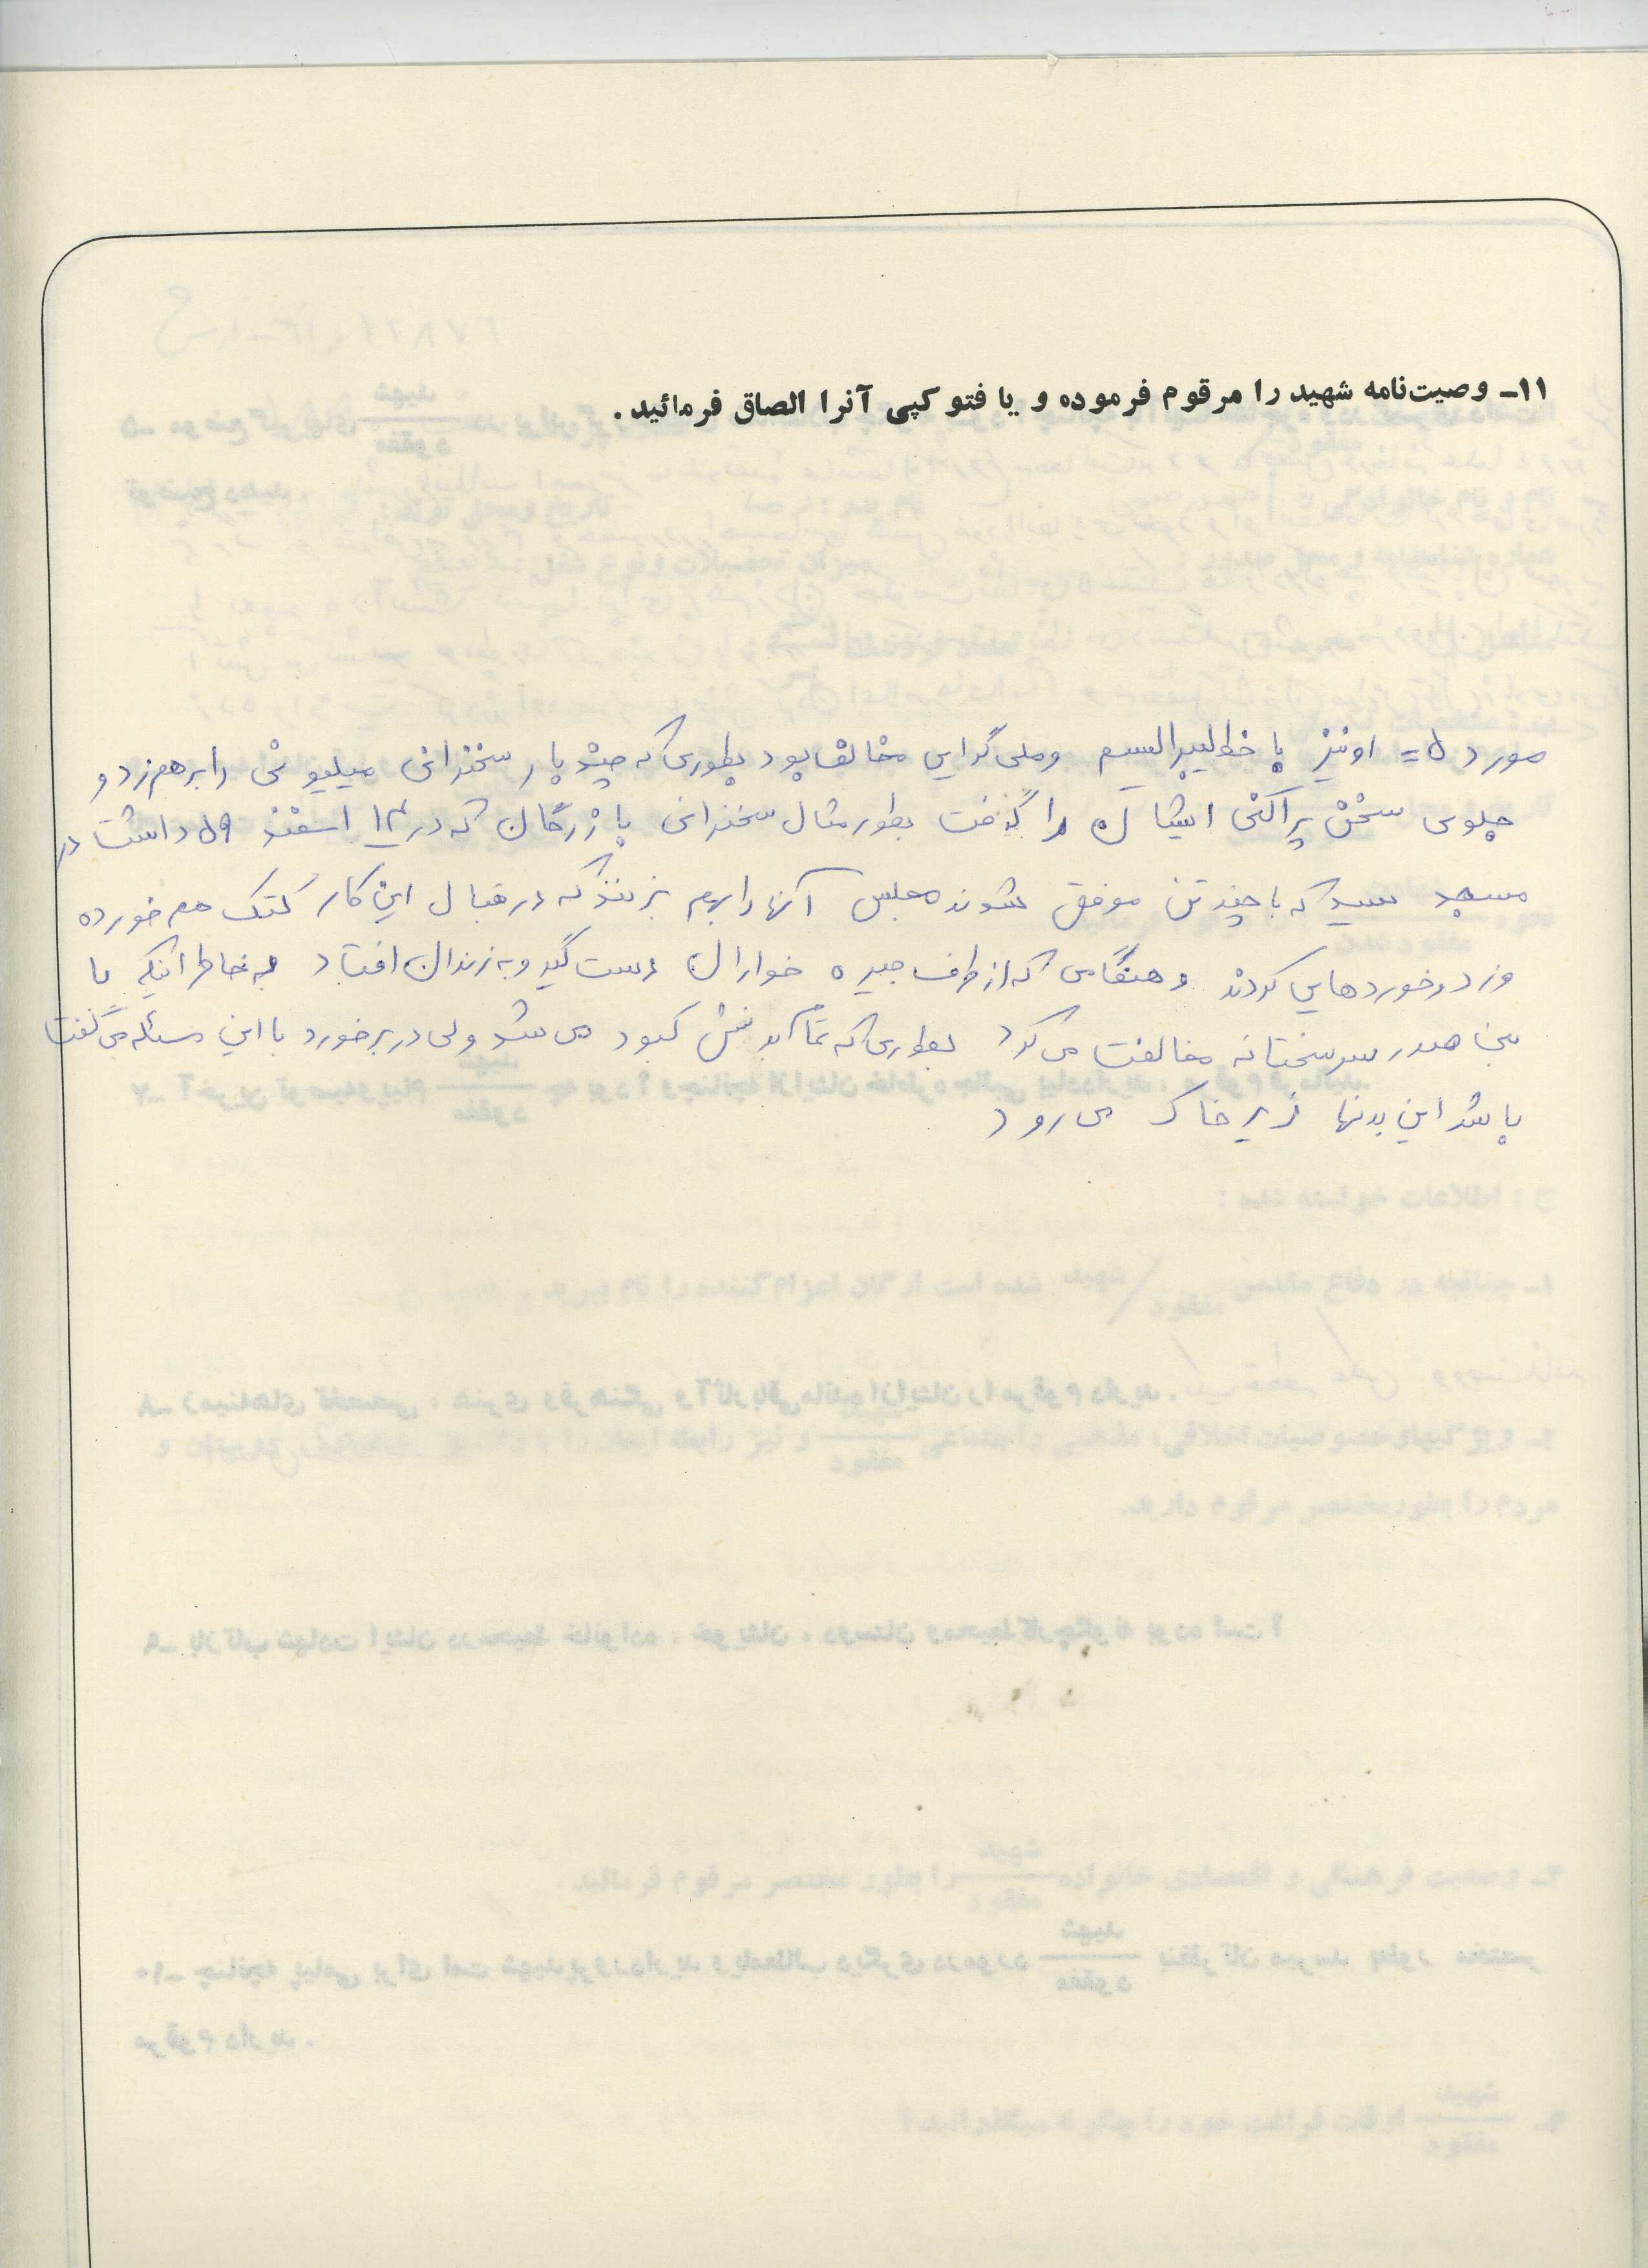 ۱۱- وصیت‌نامه شهید را مرقوم فرموده و یا فتوکپی آنرا الصاق فرمائید.
مورد ۵ = او نیز با خط لیبرالیسم و ملی گرایی مخالف بود بطوری که چند بار سخنرانی را برهم زد و
جلوی سخن پراکنی ایشان را گرفت بطور مثال سخنرانی بازرگان که در ۱۴ اسفند ۵۹ داشت در
مسجد سید که با چند تن موفق شدند مجلس آنها را بهم بزنند که در قبال این کار کتک هم خورده
و زد و خوردهایی کردند و هنگامی که از طرف جیره خواران دستگیر و به زندان افتاد به خاطر اینکه با
بنی صدر سرسختانه مخالفت می کرد بطوری که تماً بدنش کبود می شد ولی در برخورد با این مسئله می گفت
باشد این بدنها زیر خاک می رود